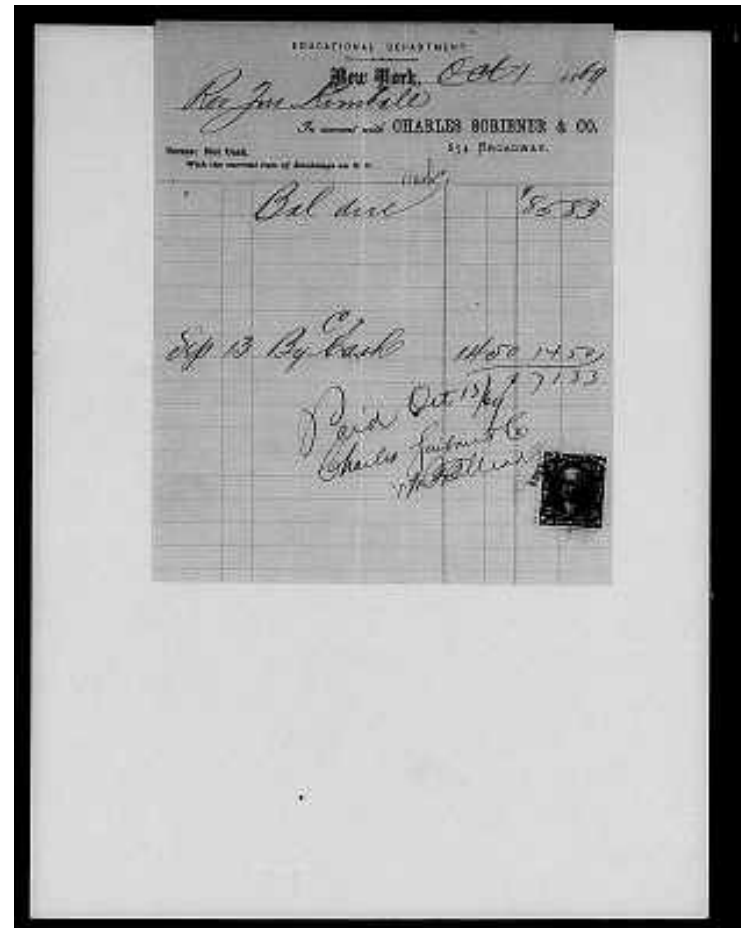 EDUCATIONAL DEPARTMENT
New York, Oct 1 1869
Rev Jno Kimball
In account with CHARLES SCRIBNER & CO.
654 BROADWAY.
Terms: Net Cash.
With the current rate of Exchange on N. Y.
Bal due $85 83
Sep 13 By Cash 14 50 14 50
71 33
Paid Oct 15/69
Charles Scribner & Co